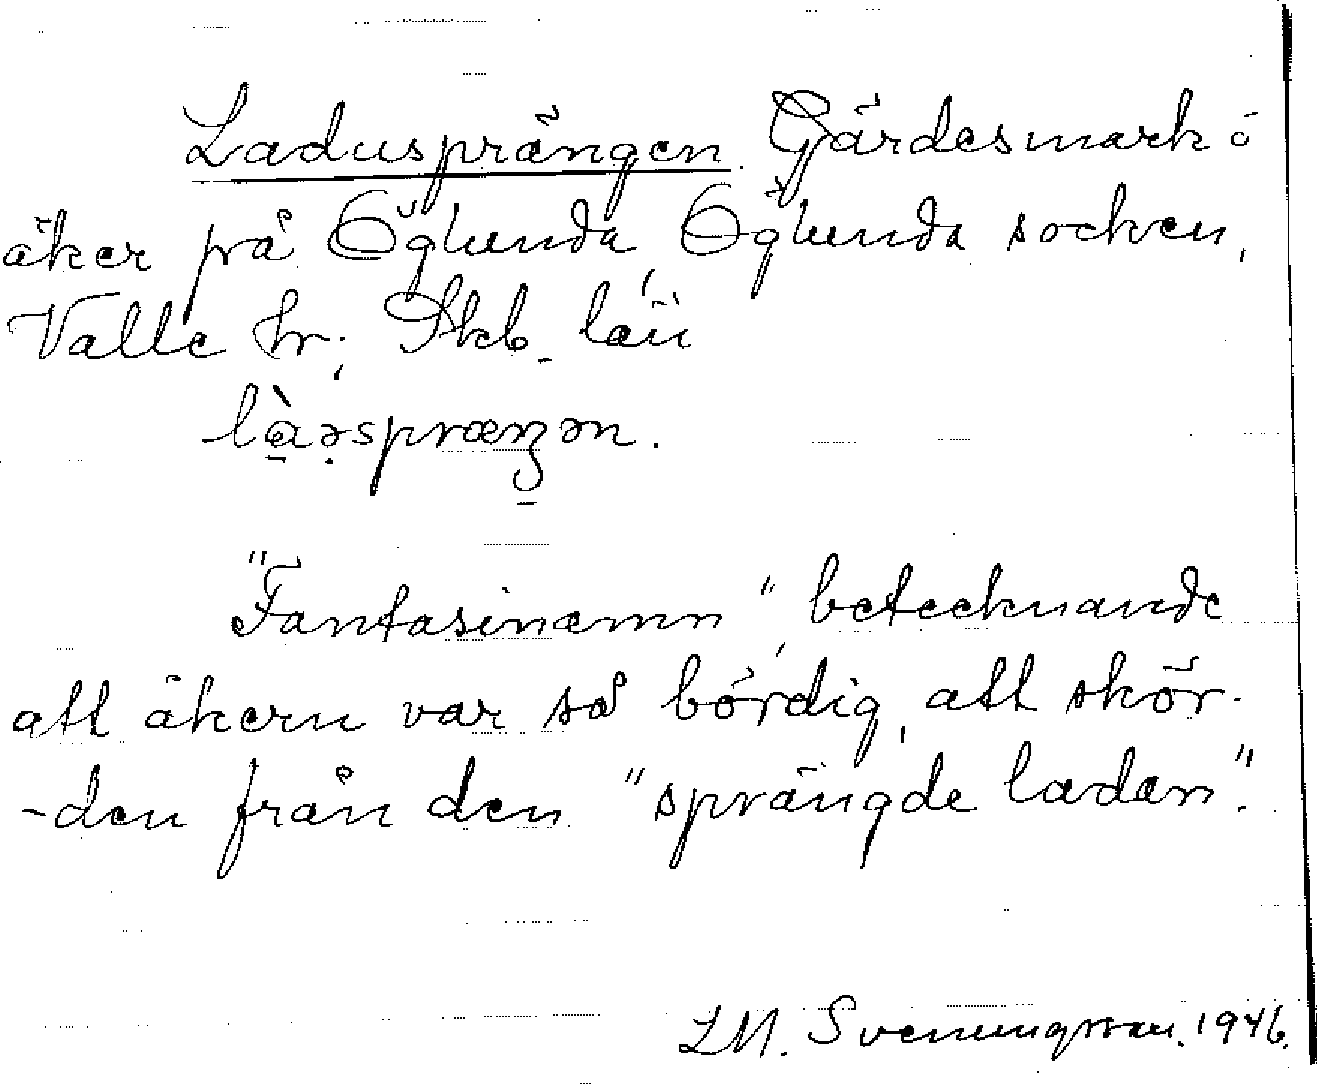 Ladusprängen. Gärdesmark o
åker på Öglunda, Öglunda socken,
Valle hr; Skb. län
là̱ə̣spræŋən.
"Fantasinamn", betecknande
att åkern var så bördig, att skör-
-den från den "sprängde ladan".
LM. Svenungsson. 1946.